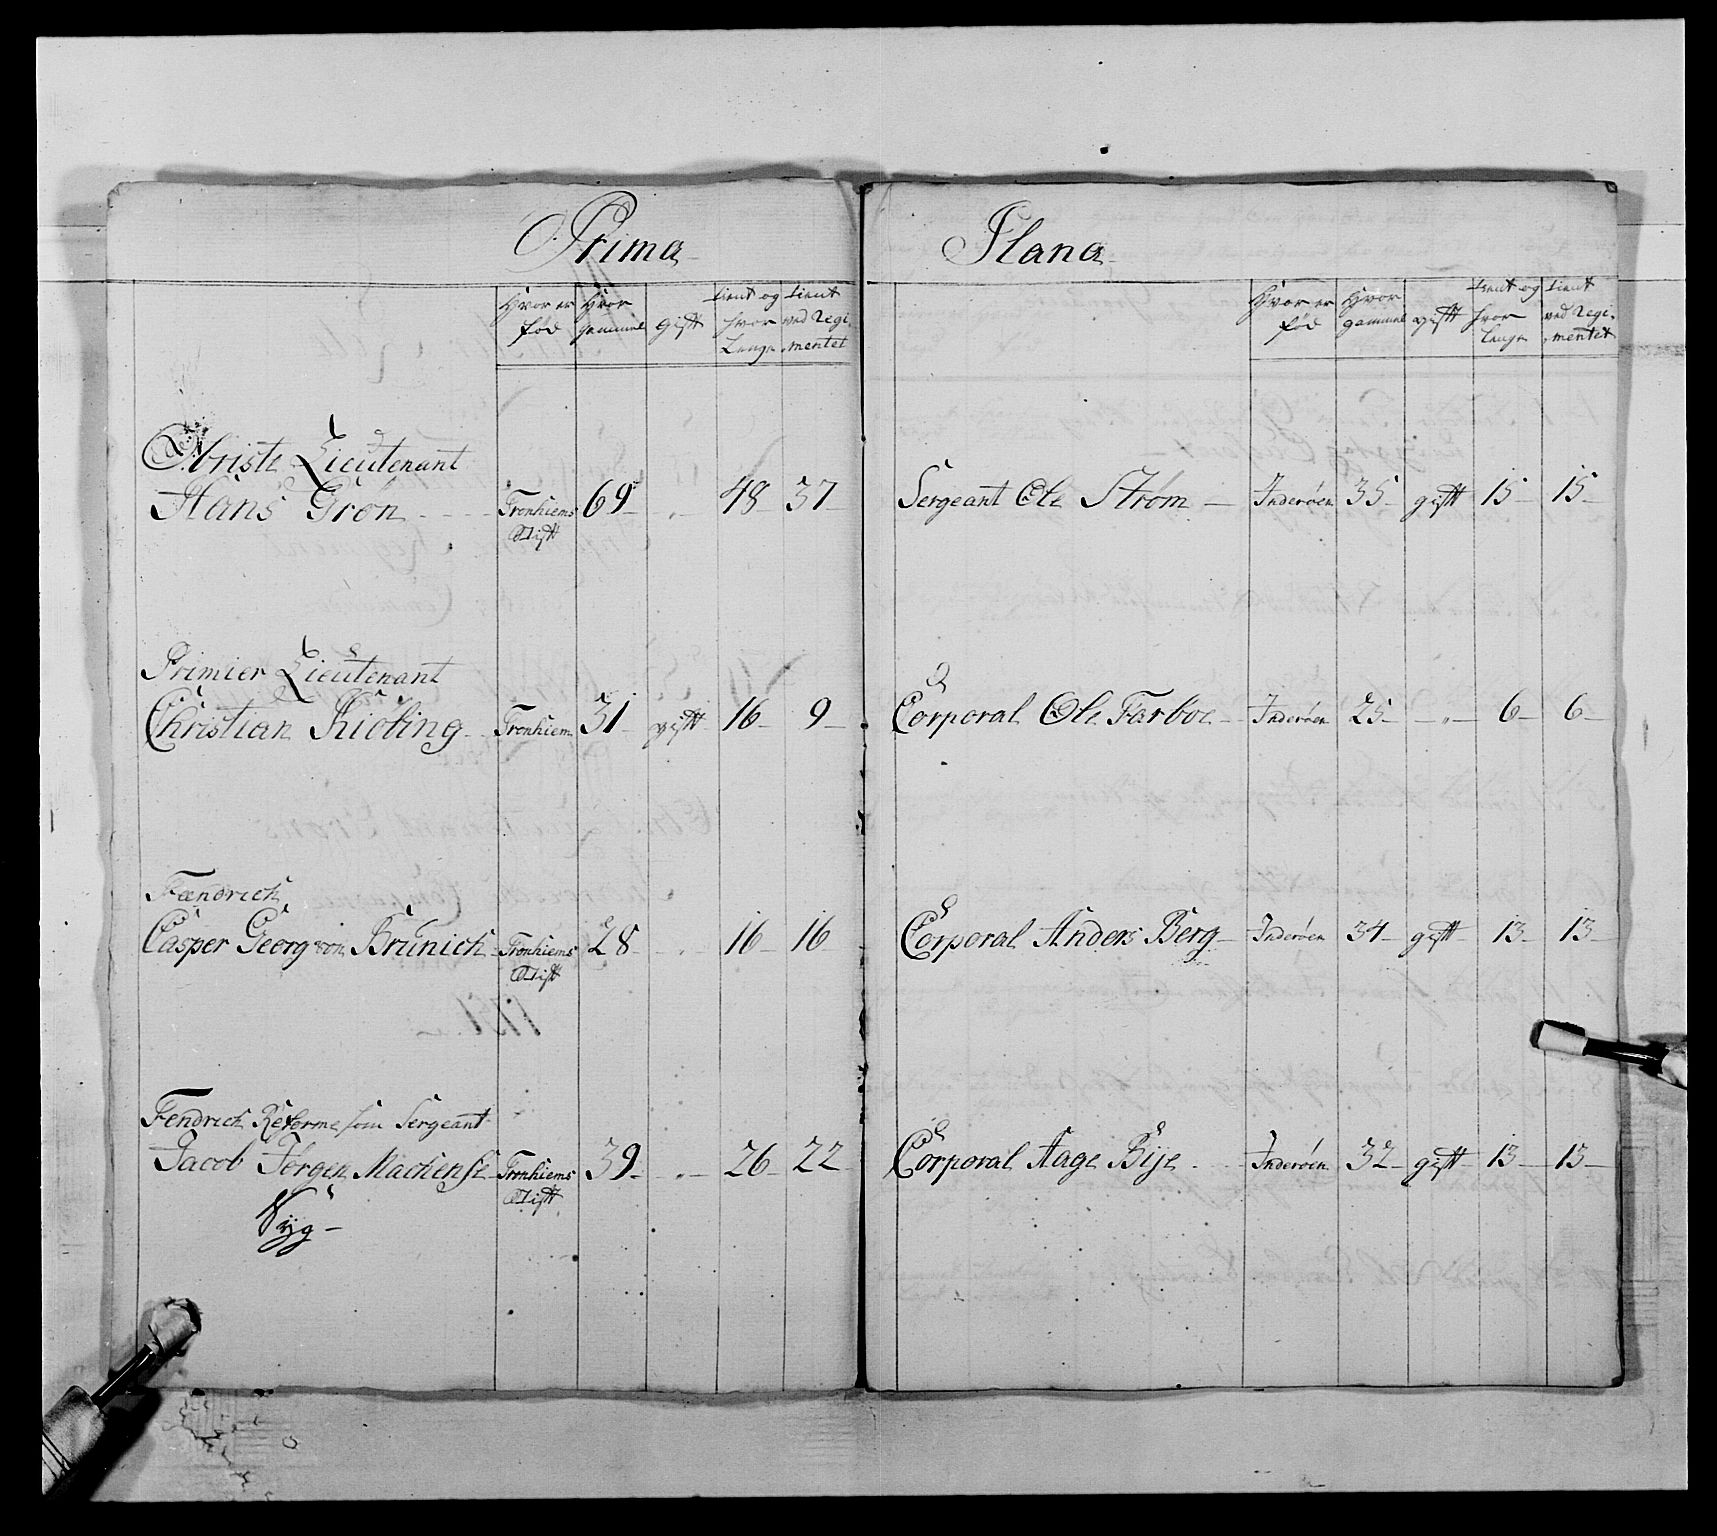 Prima
Hvor er Hvor Gift tient og tient
fød gammel hvor ved Regi-
Længe mentet
Obriste Lieutenant
Hans Grøn Tronhiems 69 „ 48 37
Stift
Primier Lieutenant
Christian Kiøbing Tronhiem 31 gift 16 9
Fændrich
Casper Georg von Brünich Tronhiems 28 „ 16 16
Stift
Fendrich Reforme som Sergeant
Jacob Jørgen Machense Tronhiems 39 „ 26 22
Stift
Syg
Plana
Hvor er Hvor gift tient og tient
fød gammel hvor ved Regi-
Længe mentet
Sergeant Ole Strøm Inderøen 35 gift 15 15
Corporal Ole Farboe Inderøen 25 „ 6 6
Corporal Anders Berg Inderøen 34 gift 13 13
Corporal Aage Bije Inderøen 32 gift 13 13